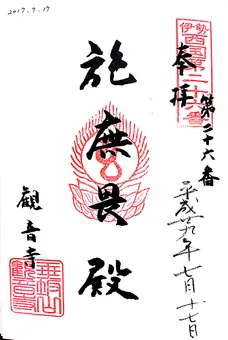 2017.7.17
伊勢
西国第二十六番
奉拝
第二十六番
施無畏殿
平成廿九年七月十七日
観音寺
垂坂山
観音寺